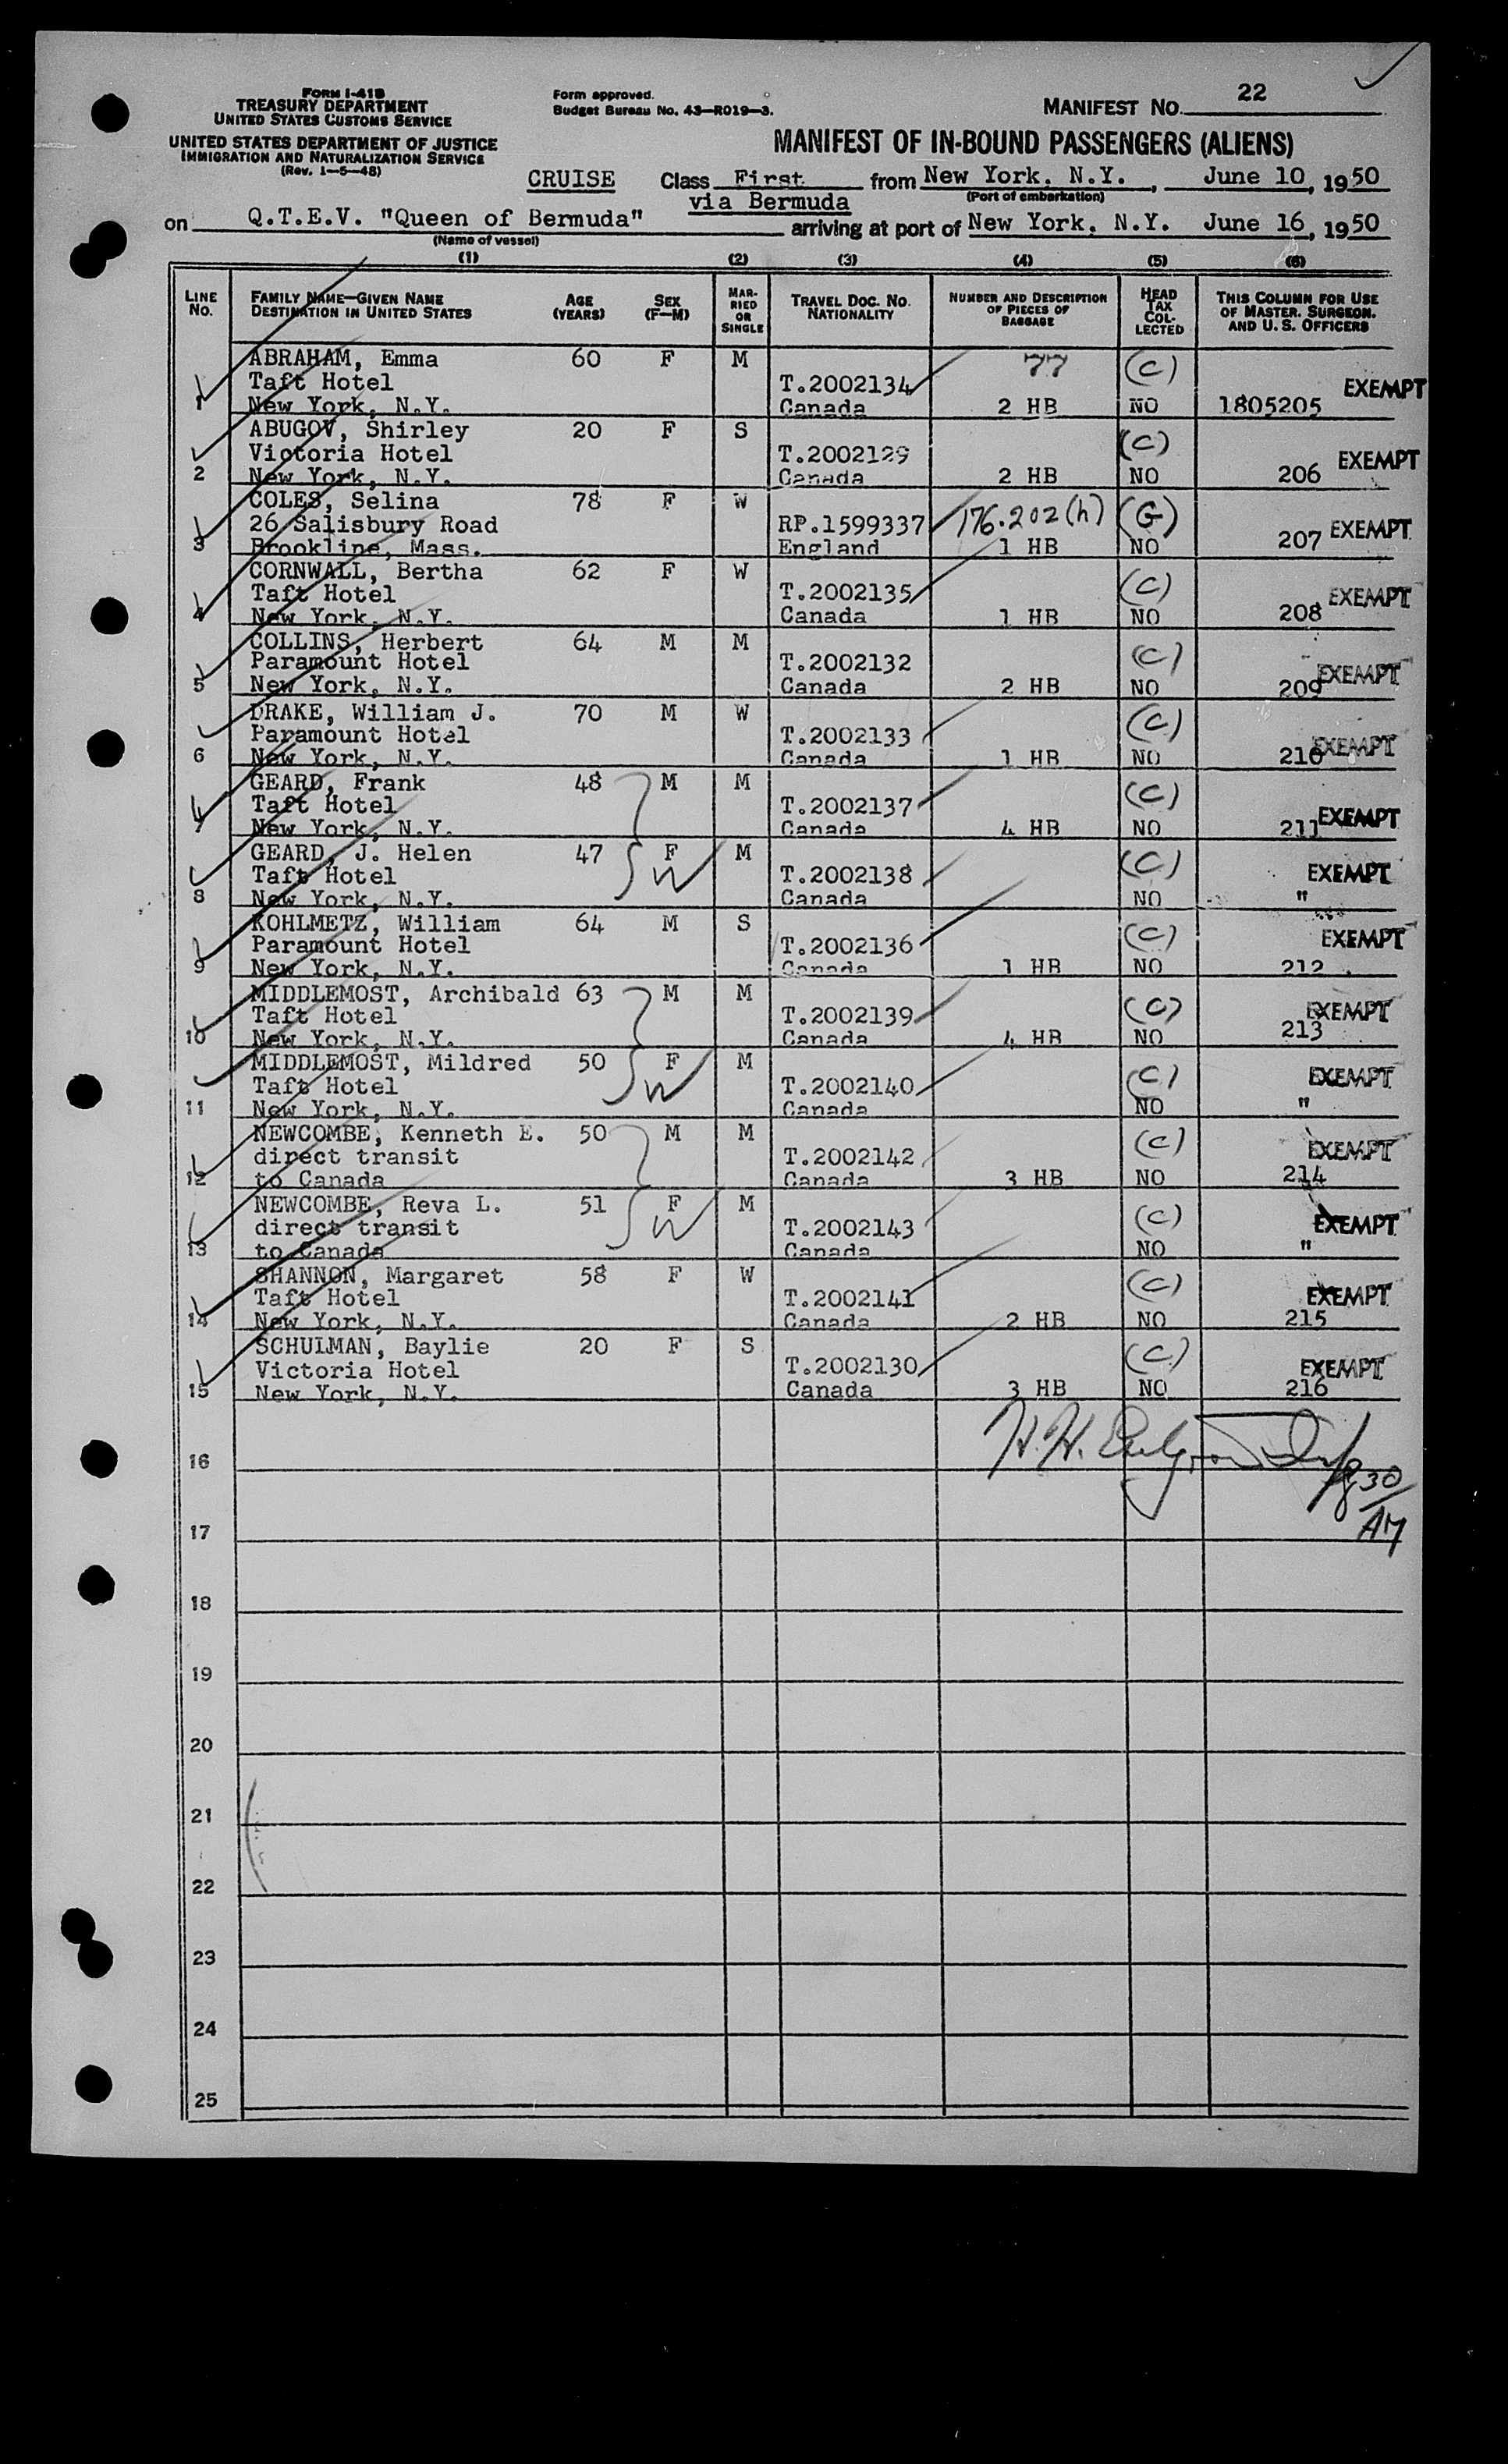 FORM I-418
TREASURY DEPARTMENT
UNITED STATES CUSTOMS SERVICE
UNITED STATES DEPARTMENT OF JUSTICE
IMMIGRATION AND NATURALIZATION SERVICE
(Rev. 1-5-48)
Form approved.
Budget Bureau No. 43-R019-3.
MANIFEST NO. 22
MANIFEST OF IN-BOUND PASSENGERS (ALIENS)
CRUISE Class First from New York, N.Y., June 10, 1950
via Bermuda (Port of embarkation)
on Q.T.E.V. "Queen of Bermuda" arriving at port of New York, N.Y. June 16, 1950
(Name of vessel)
(1) (2) (3) (4) (5) (6)
LINE No. FAMILY NAME—GIVEN NAME DESTINATION IN UNITED STATES AGE (YEARS) SEX (F—M) MARRIED OR SINGLE TRAVEL DOC. NO. NATIONALITY NUMBER AND DESCRIPTION OF PIECES OF BAGGAGE HEAD TAX COLLECTED THIS COLUMN FOR USE OF MASTER, SURGEON, AND U. S. OFFICERS
ABRAHAM, Emma 60 F M 77 (C)
Taft Hotel T.2002134 EXEMPT
1 New York, N.Y. Canada 2 HB NO 1805205
ABUGOV, Shirley 20 F S (C)
Victoria Hotel T.2002129 EXEMPT
2 New York, N.Y. Canada 2 HB NO 206
COLES, Selina 78 F W 176.202(h) (G)
26 Salisbury Road RP.1599337 EXEMPT
3 Brookline, Mass. England 1 HB NO 207
CORNWALL, Bertha 62 F W (C)
Taft Hotel T.2002135 EXEMPT
4 New York, N.Y. Canada 1 HB NO 208
COLLINS, Herbert 64 M M (C)
Paramount Hotel T.2002132 EXEMPT
5 New York, N.Y. Canada 2 HB NO 209
DRAKE, William J. 70 M W (C)
Paramount Hotel T.2002133 EXEMPT
6 New York, N.Y. Canada 1 HB NO 210
GEARD, Frank 48 M M (C)
Taft Hotel T.2002137 EXEMPT
7 New York, N.Y. Canada 4 HB NO 211
GEARD, J. Helen 47 F M (C)
Taft Hotel W T.2002138 EXEMPT
8 New York, N.Y. Canada NO "
KOHLMETZ, William 64 M S (C)
Paramount Hotel T.2002136 EXEMPT
9 New York, N.Y. Canada 1 HB NO 212
MIDDLEMOST, Archibald 63 M M (C)
Taft Hotel T.2002139 EXEMPT
10 New York, N.Y. Canada 4 HB NO 213
MIDDLEMOST, Mildred 50 F M (C)
Taft Hotel W T.2002140 EXEMPT
11 New York, N.Y. Canada NO "
NEWCOMBE, Kenneth E. 50 M M (C)
direct transit T.2002142 EXEMPT
12 to Canada Canada 3 HB NO 214
NEWCOMBE, Reva L. 51 F M (C)
direct transit W T.2002143 EXEMPT
13 to Canada Canada NO "
SHANNON, Margaret 58 F W (C)
Taft Hotel T.2002141 EXEMPT
14 New York, N.Y. Canada 2 HB NO 215
SCHULMAN, Baylie 20 F S (C)
Victoria Hotel T.2002130 EXEMPT
15 New York, N.Y. Canada 3 HB NO 216
16 H. H.
8 30
AM
17
18
19
20
21
22
23
24
25